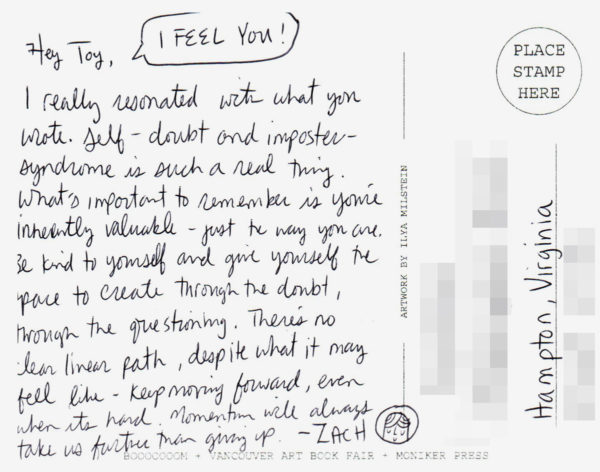 I FEEL YOU!
Hey Toy,
I really resonated with what you
wrote. Self-doubt and imposter-
syndrome is such a real thing.
What's important to remember is you're
inherently valuable - just the way you are.
Be kind to yourself and give yourself the
space to create through the doubt,
through the questioning. There's no
clear linear path, despite what it may
feel like - keep moving forward, even
when its hard. Momentum will always
take us further than giving up. -ZACH
PLACE
STAMP
HERE
ARTWORK BY ILYA MILSTEIN
Hampton, Virginia
BOOOOOOOM + VANCOUVER ART BOOK FAIR + MONIKER PRESS